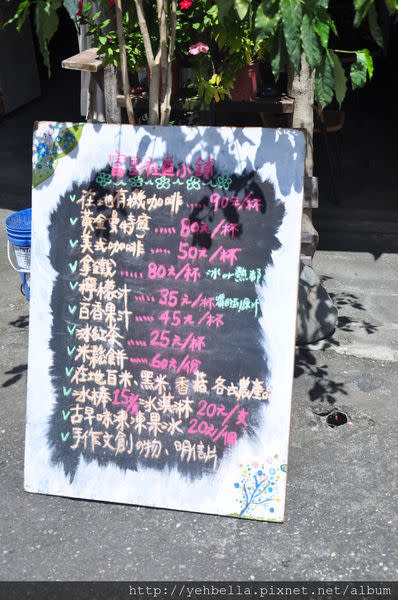 富里社區小舖
在地有機咖啡.....90元/杯
黃金曼特寧.....80元/杯
美式咖啡.....50元/杯
拿鐵.....80元/杯 冰or熱都
檸檬汁.....35元/杯
百香果汁.....45元/杯
冰紅茶.....25元/杯
米鬆餅.....60元/份
在地白米、黑米、香菇、各式農產品
冰棒15元 冰淇淋 20元/支
古早味凍凍果冰 20元/個
手作文創小物、明信片
http://yehbella.pixnet.net/album